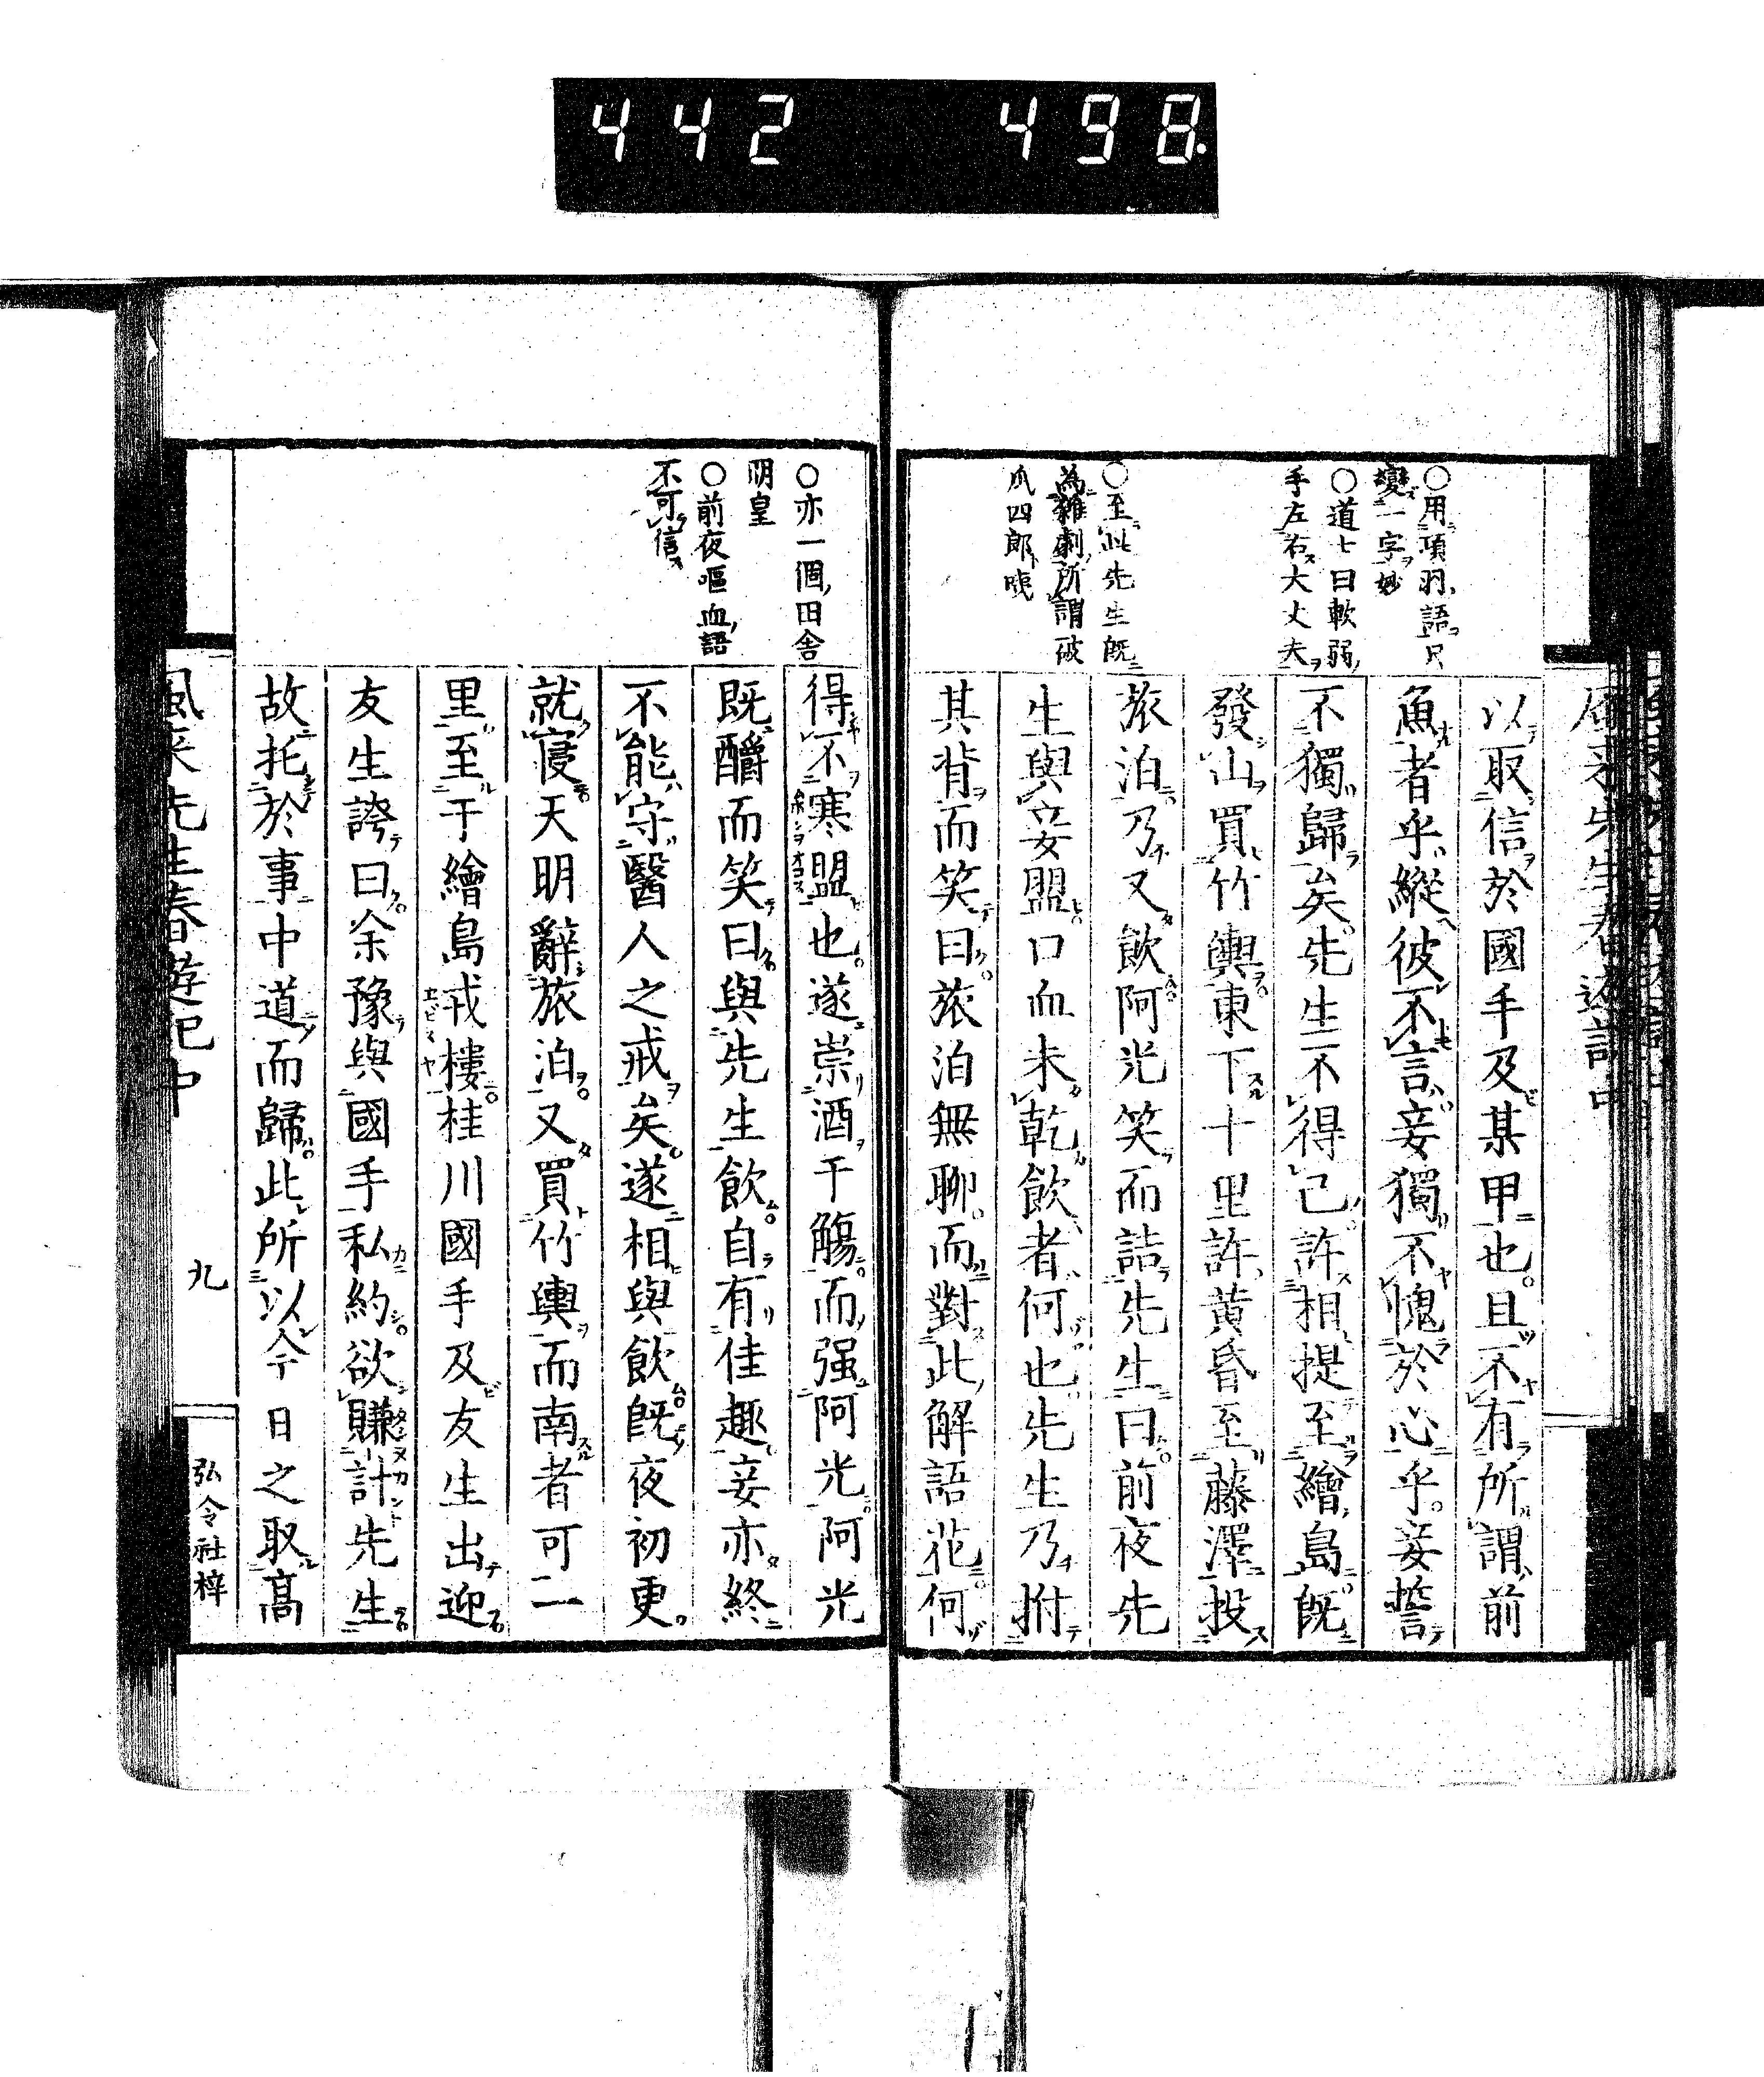 442 498.
○用項羽語只
變一字妙
○道七曰軟弱
手左右大丈夫
○至此先生既
為雜劇所謂破
爪四郎
以取信於國手及某甲也且不有所謂前
魚者乎縱彼不言妾獨不愧於心乎妾誓
不獨歸矣先生不得已許相提至繪島既
發山買竹輿東下十里許黃昏至藤澤投
旅泊乃又飲阿光笑而詰先生曰前夜先
生與妾盟口血未乾飲者何也先生乃拊
其背而笑曰旅泊無聊而對此解語花何
○亦一個田舍
明皇
○前夜嘔血語
不可信
得不寒盟也遂崇酒于觴而强阿光阿光
既釂而笑曰與先生飲自有佳趣妾亦終
不能守醫人之戒矣遂相與飲既夜初更
就寢天明辭旅泊又買竹輿而南者可二
里至于繪島戎樓桂川國手及友生出迎
友生誇曰余豫與國手私約欲賺計先生
故托於事中道而歸此所以今日之取高
風來先生春遊記中
九
弘令社梓